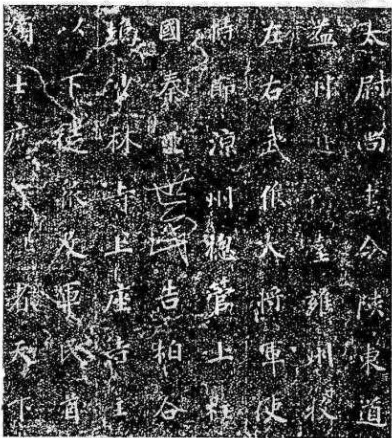 太尉尚書令陝東道
益州道行臺雍州牧
左右武候大將軍使
持節涼州總管上柱
國秦王世民告柏谷
塢少林寺上座寺主
以下徒眾及軍民首
領士庶等 者天下